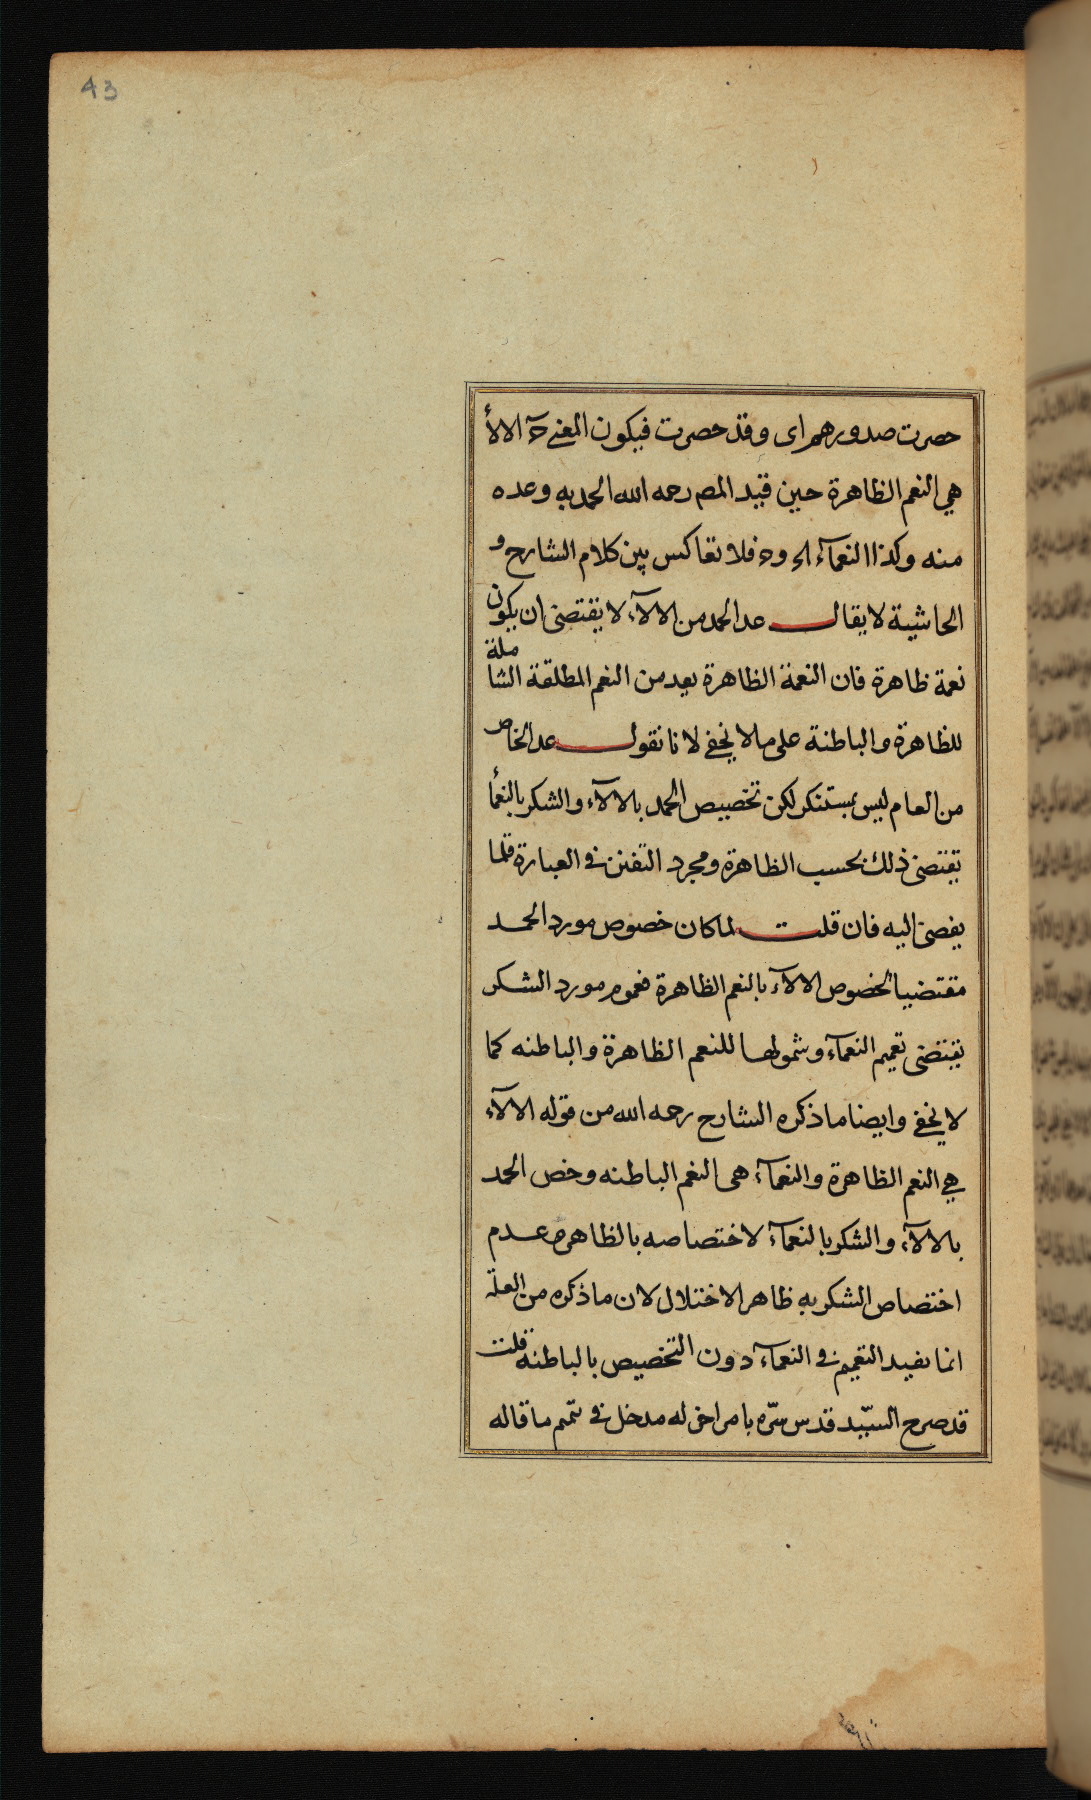 43
حصرت صدورهم اى وقد حصرت فيكون المعنى ح الالآ
هي النعم الظاهرة حين قيد المص رحمه الله الحمد به وعده
منه وكذا النعمآء الخ وح فلا تعاكس بين كلام الشارح و
الحاشية لا يقال عد الحمد من الالآء لا يقتضى ان يكون
نعمة ظاهرة فان النعمة الظاهرة يعد من النعم المطلقة الشاملة
للظاهرة والباطنة على ما لا يخفى لانا نقول عد الخاص
من العام ليس بمستنكر لكن تخصيص الحمد بالالآء والشكر بالنعمأ
يقتضى ذلك بحسب الظاهرة ومجرد التفنن فى العبارة قلما
يفضى اليه فان قلت لما كان خصوص مورد الحمد
مقتضيا لخصوص الالآء بالنعم الظاهرة فعموم مورد الشكر
يقتضى تعميم النعمآء وشمولها للنعم الظاهرة والباطنه كما
لا يخفى وايضا ما ذكره الشارح رحمه الله من قوله الالآء
هي النعم الظاهرة والنعمآء هى النعم الباطنه وخص الحمد
بالالآء والشكر بالنعمآء لاختصاصه بالظاهره وعدم
اختصاص الشكر به ظاهر الاختلال لان ما ذكره من العلة
انما يفيد التعميم فى النعمآء دون التخصيص بالباطنه قلت
قد صرح السيّد قدس سرّه بامر اخر له مدخل فى تتميم ما قاله